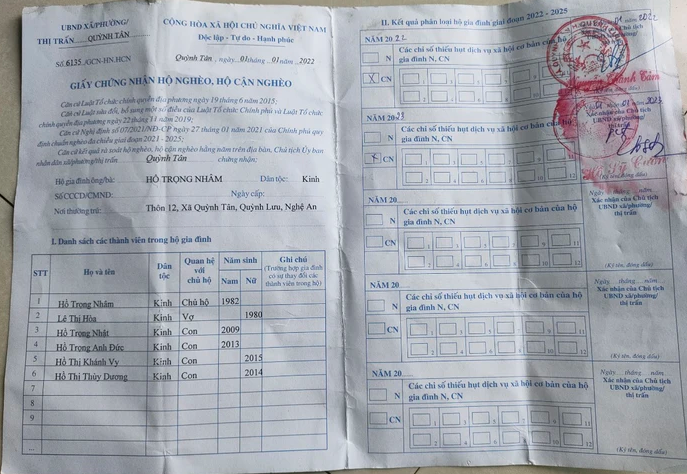 UBND XÃ/PHƯỜNG/
THỊ TRẤN QUỲNH TÂN
Số 6135/GCN-HN.HCN
CỘNG HÒA XÃ HỘI CHỦ NGHĨA VIỆT NAM
Độc lập - Tự do - Hạnh phúc
Quỳnh Tân, ngày 01 tháng 01 năm 2022
GIẤY CHỨNG NHẬN HỘ NGHÈO, HỘ CẬN NGHÈO
Căn cứ Luật Tổ chức chính quyền địa phương ngày 19 tháng 6 năm 2015;
Căn cứ Luật sửa đổi, bổ sung một số điều của Luật Tổ chức Chính phủ và Luật Tổ chức
chính quyền địa phương ngày 22 tháng 11 năm 2019;
Căn cứ Nghị định số 07/2021/NĐ-CP ngày 27 tháng 01 năm 2021 của Chính phủ quy
định chuẩn nghèo đa chiều giai đoạn 2021 - 2025;
Căn cứ kết quả rà soát hộ nghèo, hộ cận nghèo hằng năm trên địa bàn, Chủ tịch Ủy ban
nhân dân xã/phường/thị trấn Quỳnh Tân chứng nhận:
Hộ gia đình ông/bà: HỒ TRỌNG NHÂM Dân tộc: Kinh
Số CCCD/CMND: Ngày cấp:
Nơi thường trú: Thôn 12, Xã Quỳnh Tân, Quỳnh Lưu, Nghệ An
I. Danh sách các thành viên trong hộ gia đình
STT Họ và tên Dân tộc Quan hệ với chủ hộ Năm sinh Nam Nữ Ghi chú (Trường hợp gia đình có sự thay đổi các thành viên trong hộ)
1 Hồ Trọng Nhâm Kinh Chủ hộ 1982
2 Lê Thị Hòa Kinh Vợ 1980
3 Hồ Trọng Nhật Kinh Con 2009
4 Hồ Trọng Anh Đức Kinh Con 2013
5 Hồ Thị Khánh Vy Kinh Con 2015
6 Hồ Thị Thùy Dương Kinh Con 2014
7
8
9
...
II. Kết quả phân loại hộ gia đình giai đoạn 2022 - 2025
NĂM 2022
N Các chỉ số thiếu hụt dịch vụ xã hội cơ bản của hộ
gia đình N, CN
X CN
NĂM 2023
01 năm 2023
Xác nhận của Chủ tịch
UBND xã/phường/
thị trấn
N Các chỉ số thiếu hụt dịch vụ xã hội cơ bản của hộ
gia đình N, CN
X CN
(Ký tên, đóng dấu)
NĂM 20
Ngày tháng năm
Xác nhận của Chủ tịch
UBND xã/phường/
thị trấn
N Các chỉ số thiếu hụt dịch vụ xã hội cơ bản của hộ
gia đình N, CN
CN
(Ký tên, đóng dấu)
NĂM 20
Ngày tháng năm
Xác nhận của Chủ tịch
UBND xã/phường/
thị trấn
N Các chỉ số thiếu hụt dịch vụ xã hội cơ bản của hộ
gia đình N, CN
CN
(Ký tên, đóng dấu)
NĂM 20
Ngày tháng năm
Xác nhận của Chủ tịch
UBND xã/phường/
thị trấn
N Các chỉ số thiếu hụt dịch vụ xã hội cơ bản của hộ
gia đình N, CN
CN
(Ký tên, đóng dấu)